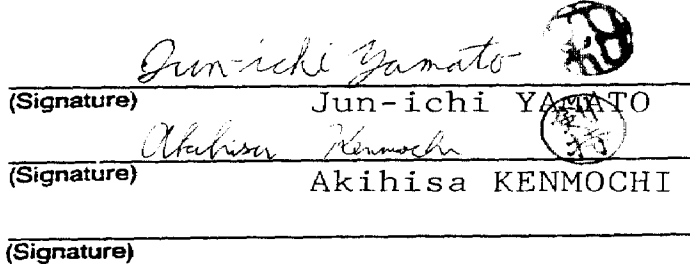 Jun-ichi Yamato
(Signature) Jun-ichi YAMATO
Akihisa Kenmochi
(Signature) Akihisa KENMOCHI
(Signature)